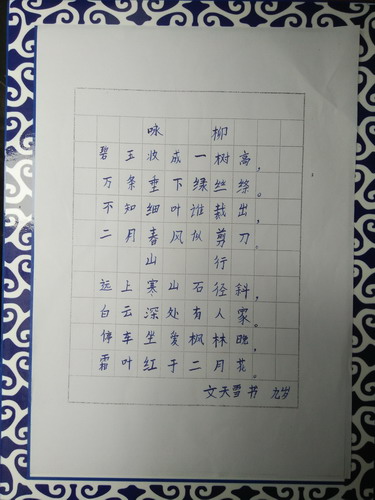 咏柳
碧玉妆成一树高，
万条垂下绿丝绦。
不知细叶谁裁出，
二月春风似剪刀。
山行
远上寒山石径斜，
白云深处有人家。
停车坐爱枫林晚，
霜叶红于二月花。
文天雪书 九岁